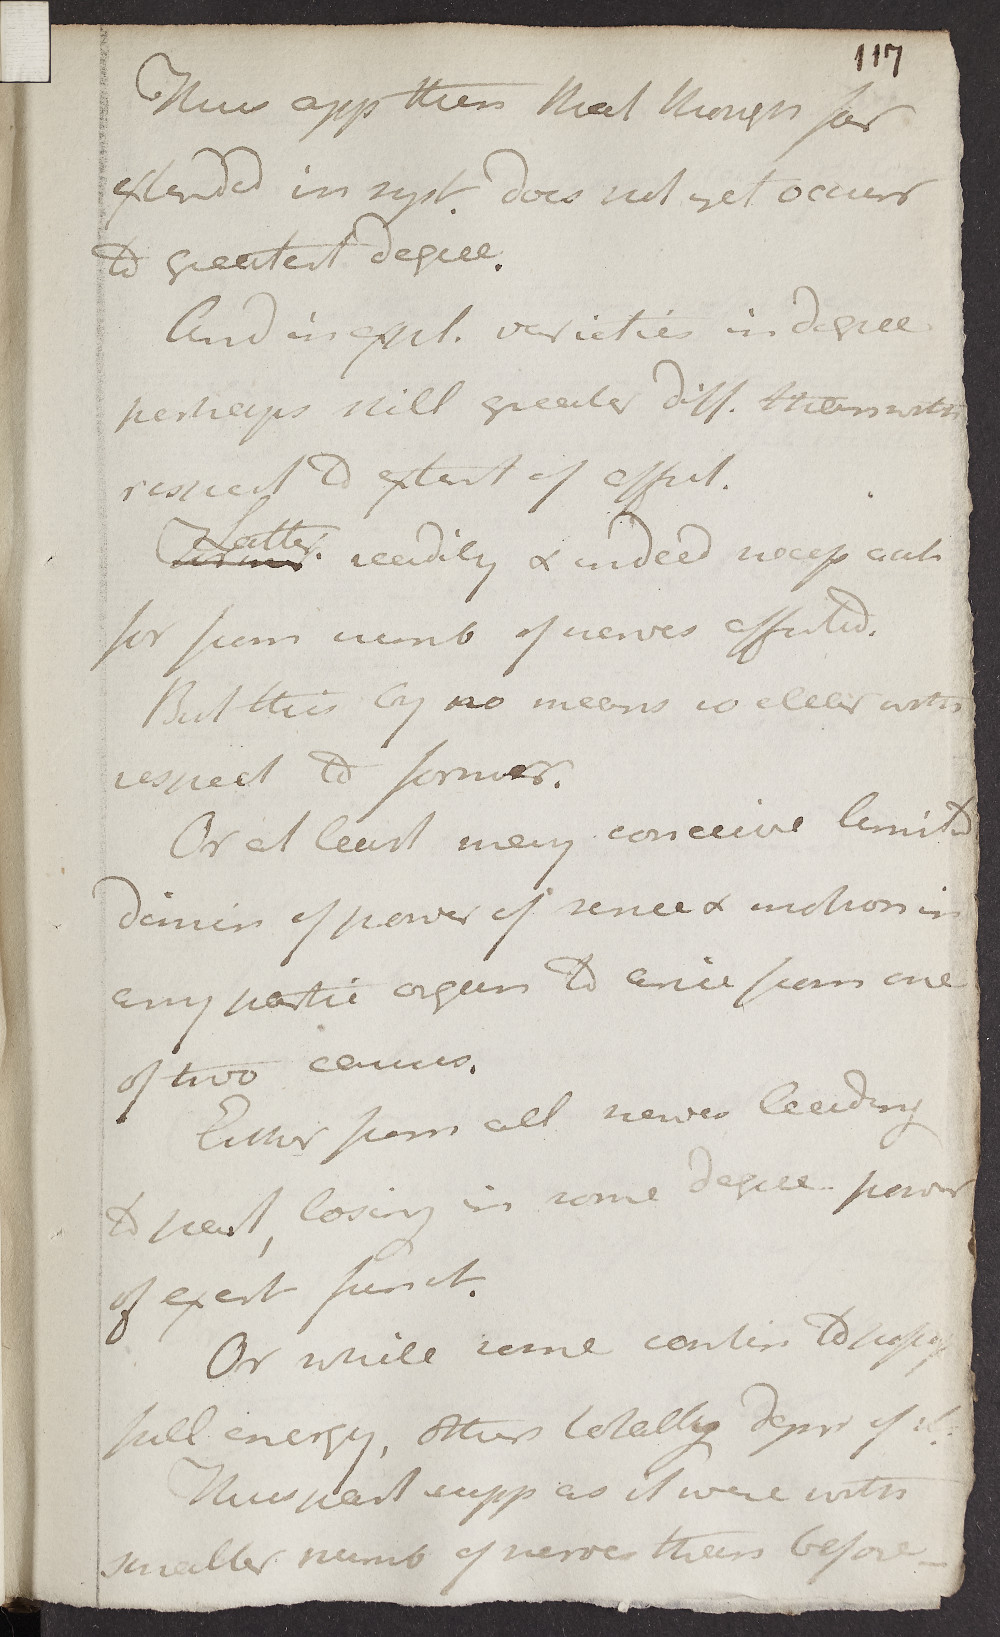 117
Thus app then that though far
extended in syst. does not yet occurr
to greatest degree.
And in expl. varieties in degree
perhaps still greater diff. than with
respect to extent of effect.
Latter. readily & indeed necess acct
for from numb of nerves affected.
But this by no means so clear with
respect to former.
Or at least may conceive limited
dimin of power of sense & motion in
any partic organ to arise from one
of two causes.
Either from all nerves leading
to part, losing in some degree power
of exert funct.
Or while some contin to possess
full energy, others totally depr of it.
Thus part supp as it were with
smaller numb of nerves than before